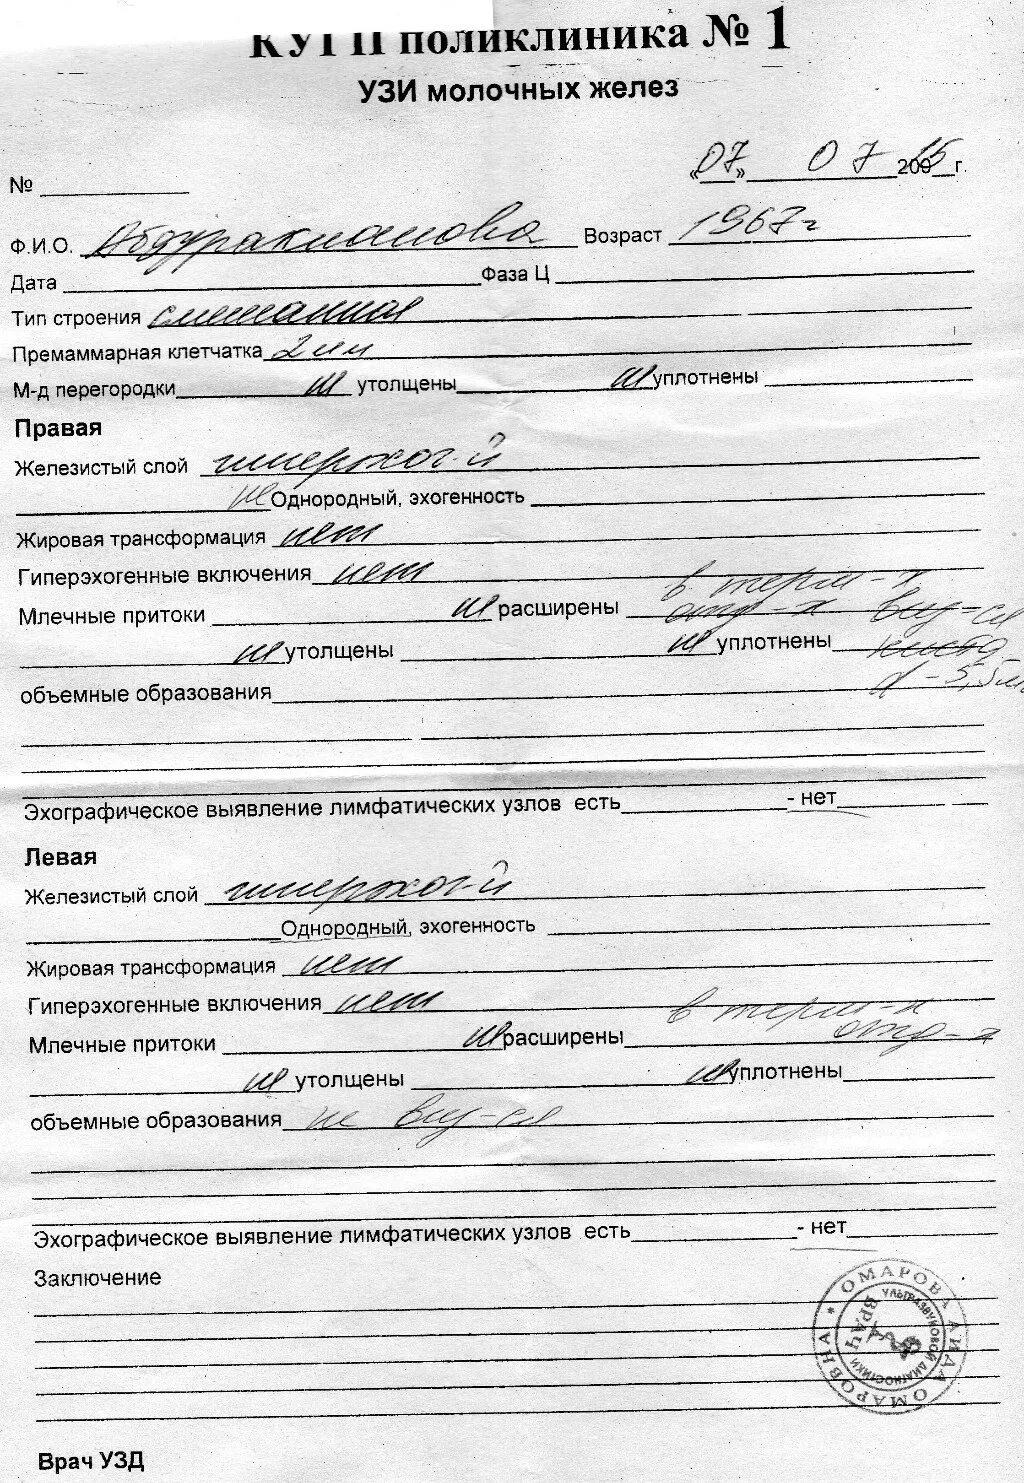 поликлиника № 1
УЗИ молочных желез
« 07 » 07 200 15 г.
№
Ф.И.О. Абдурахманова Возраст 1967г
Дата Фаза Ц
Тип строения смешанная
Премаммарная клетчатка 2мм
М-д перегородки не утолщены не уплотнены
Правая
Железистый слой гиперэхог-й
не Однородный, эхогенность
Жировая трансформация нет
Гиперэхогенные включения нет
в терм-х
Млечные притоки не расширены отд-х виз-ся
не утолщены не уплотнены киста
объемные образования d - 5,5мм
Эхографическое выявление лимфатических узлов есть - нет
Левая
Железистый слой гиперэхог-й
Однородный, эхогенность
Жировая трансформация нет
Гиперэхогенные включения нет в терм-х
Млечные притоки не расширены отд-х
не утолщены не уплотнены
объемные образования не виз-ся
Эхографическое выявление лимфатических узлов есть - нет
Заключение
* ОМАРОВА АИДА ОМАРОВНА
ВРАЧ УЛЬТРАЗВУКОВОЙ ДИАГНОСТИКИ
Врач УЗД